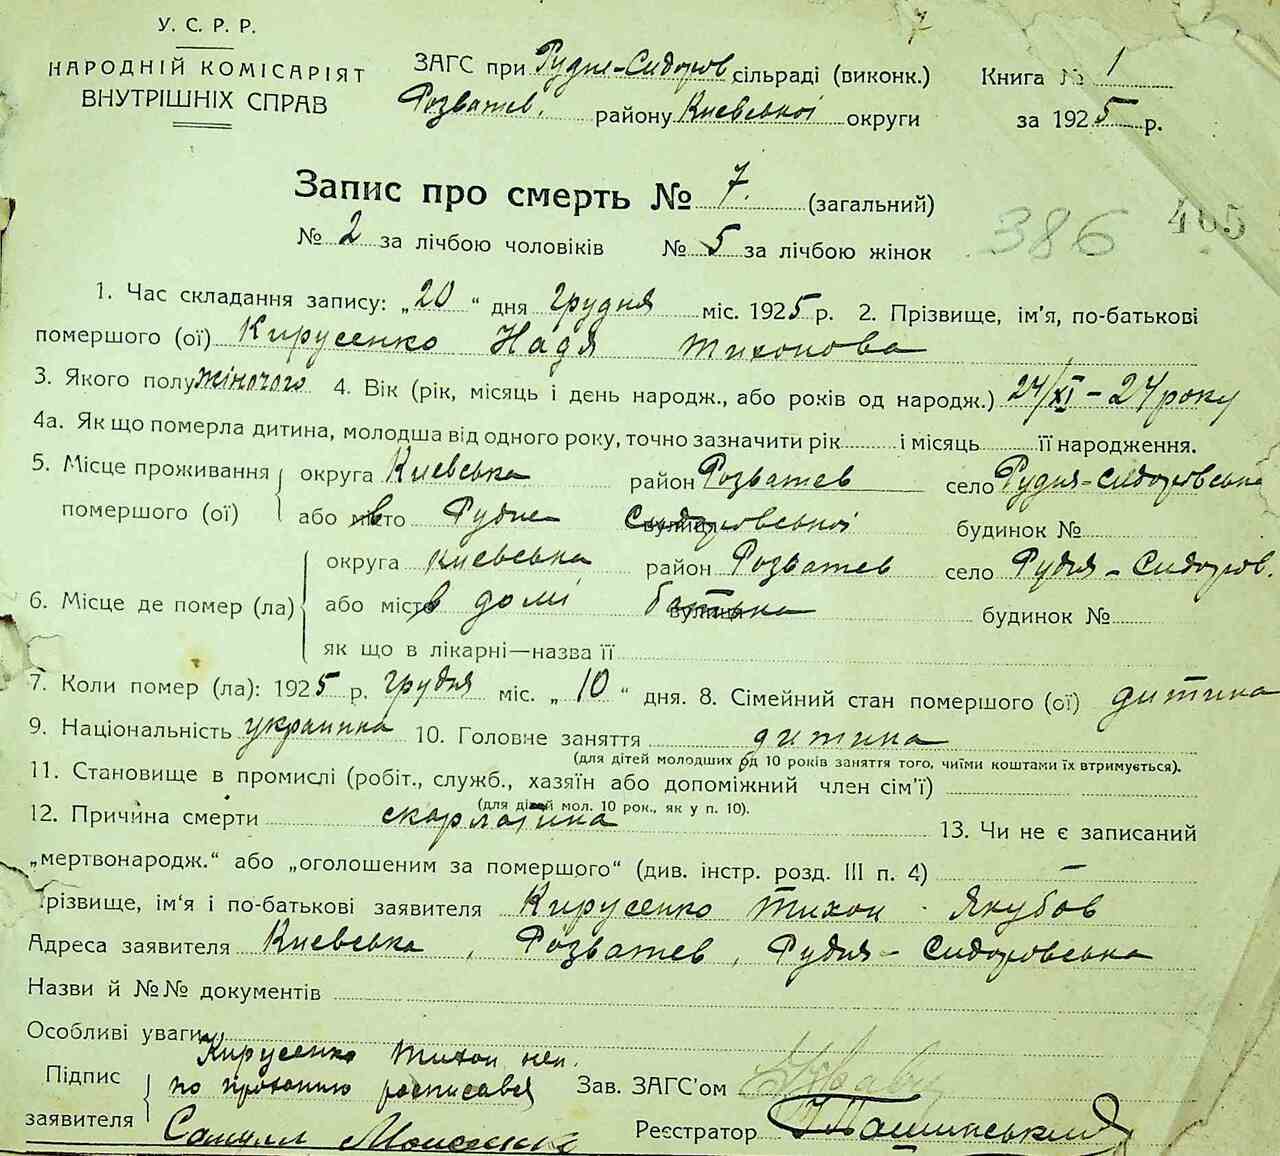 7
У. С. Р. Р.
НАРОДНІЙ КОМІСАРІЯТ
ВНУТРІШНІХ СПРАВ
ЗАГС при Рудне-Сидоров сільраді (виконк.)
Розватев. району Киевської округи
Книга № 1
за 1925 р.
Запис про смерть № 7. (загальний)
№ 2 за лічбою чоловіків № 5 за лічбою жінок
386 405
1. Час складання запису: „20" дня грудня міс. 1925 р. 2. Прізвище, ім'я, по-батькові
помершого (ої) Кирусенко Надя Тихонова
3. Якого полу жіночого 4. Вік (рік, місяць і день народж., або років од народж.) 24/XI – 24 року
4а. Як що померла дитина, молодша від одного року, точно зазначити рік і місяць її народження.
5. Місце проживання помершого (ої) округа Киевська район Розватев село Рудня-Сидоровська
або місто в Рудне вулиця Сидоровської будинок №
6. Місце де помер (ла) округа Киевська район Розватев село Рудня-Сидоров.
або місто в домі вулиця батька будинок №
як що в лікарні—назва її
7. Коли помер (ла): 1925 р. грудня міс. „10" дня. 8. Сімейний стан помершого (ої) дитина
9. Національність украинка 10. Головне заняття дитина
(для дітей молодших од 10 років заняття того, чиїми коштами їх втримується).
11. Становище в промислі (робіт., служб., хазяїн або допоміжний член сім'ї)
(для дітей мол. 10 рок., як у п. 10).
12. Причина смерти скарлатина 13. Чи не є записаний
„мертвонародж." або „оголошеним за помершого" (див. інстр. розд. III п. 4) –
Прізвище, ім'я і по-батькові заявителя Кирусенко Тихон Якубов
Адреса заявителя Киевська, Розватев, Рудня-Сидоровська
Назви й №№ документів
Особливі уваги
Підпис заявителя Кирусенко Тихон неп.
по проханию росписався
Самуил
Зав. ЗАГС'ом
Реєстратор Пашинський